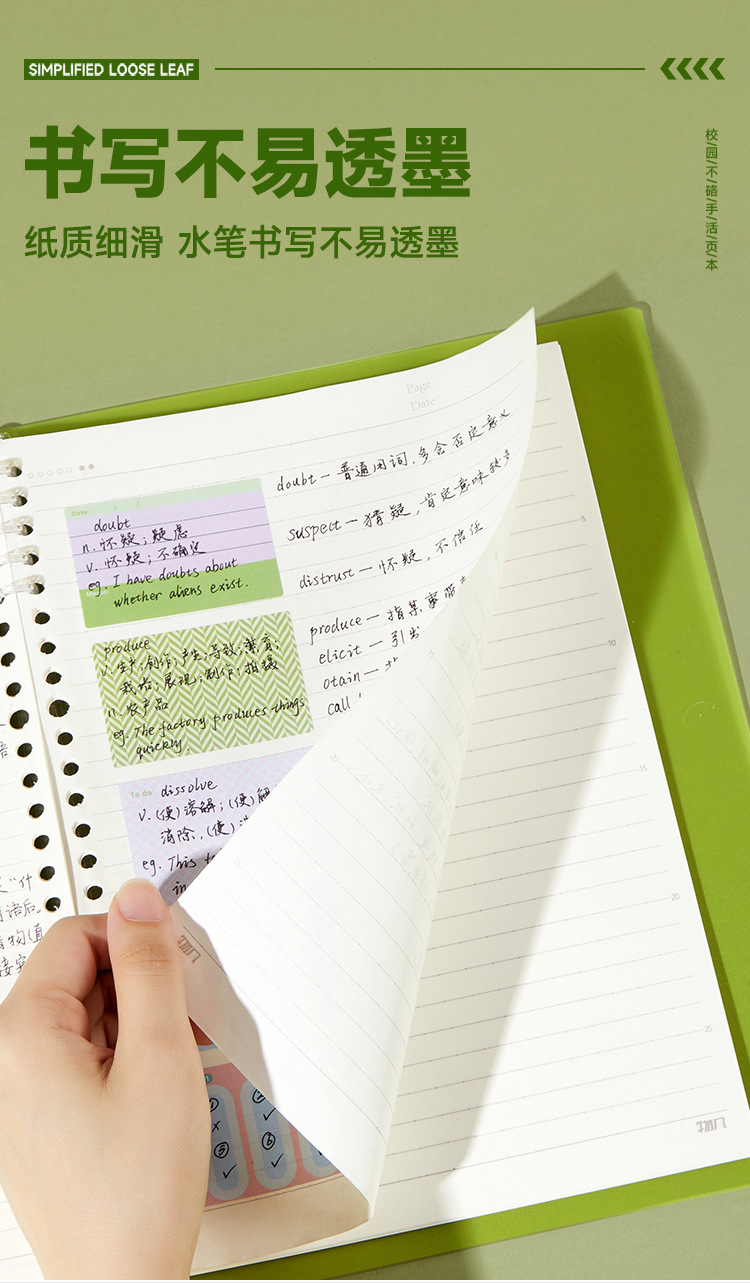 SIMPLIFIED LOOSE LEAF
书写不易透墨
纸质细滑 水笔书写不易透墨
校/园/不/硌/手/活/页/本
Page
Date
doubt — 普通用词,多含否定意义
suspect — 猜疑,肯定意味较多
distrust — 怀疑,不信任
produce — 指某事
elicit — 引出
otain —
call
Date: / /
doubt
n. 怀疑;疑虑
v. 怀疑;不确定
Memo
eg. I have doubts about
whether aliens exist.
produce
v. 生产;创作;产生;导致;繁育;
栽培;展现;制作;拍摄
n. 农产品
eg. The factory produces things
quickly.
To do
dissolve
v. (使)溶解;(使)解
消除,(使)
eg. This
in
什
语后。
物(直
接宾
①
②
x ✓
⑤ ⑥
✓ ✓
5
10
15
20
25
20
25